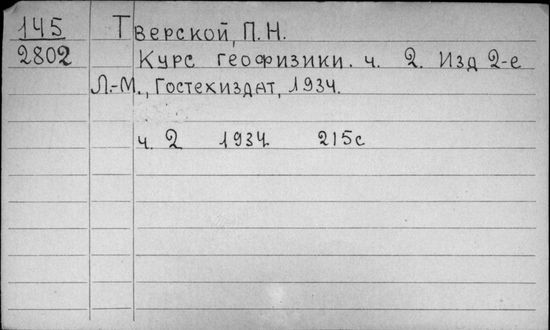 145 Тверской, П.Н.
2802 Курс геофизики. ч. 2. Изд 2-е
Л.-М., Гостехиздат, 1934.
ч. 2 1934 215с